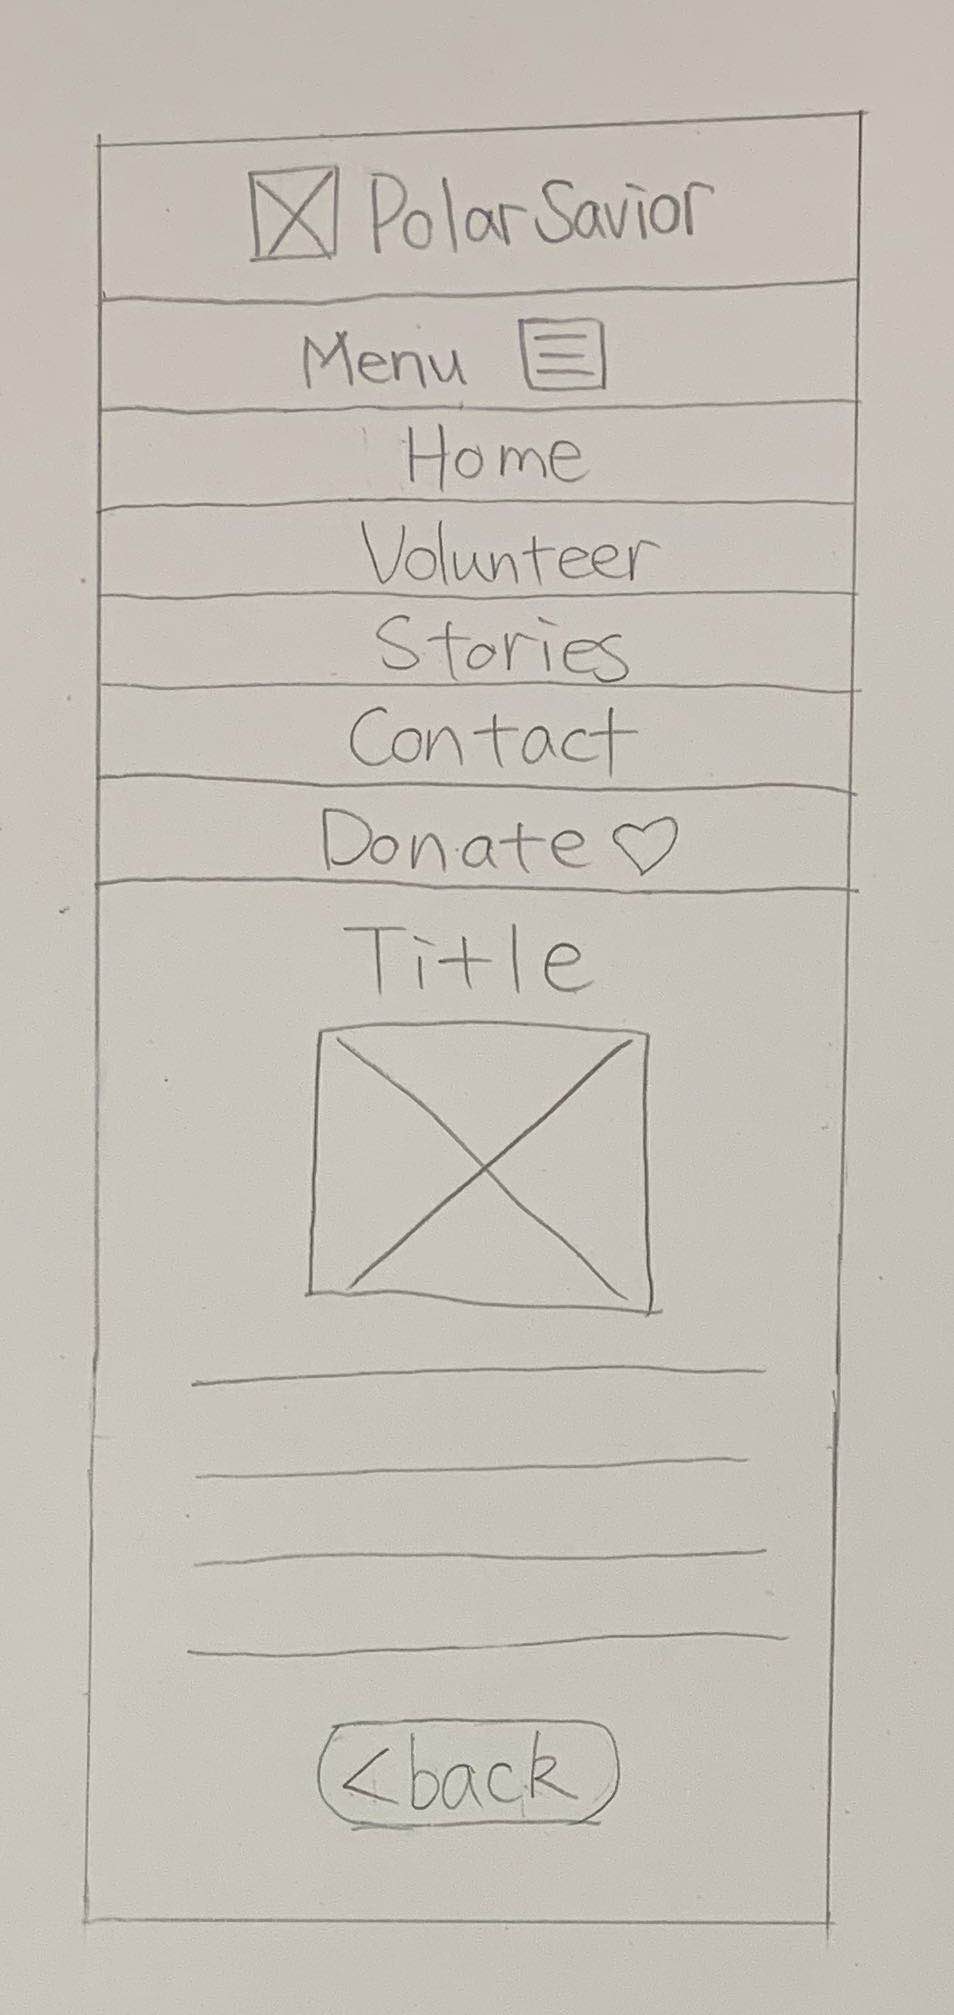 Polar Savior
Menu
Home
Volunteer
Stories
Contact
Donate ♡
Title
<back